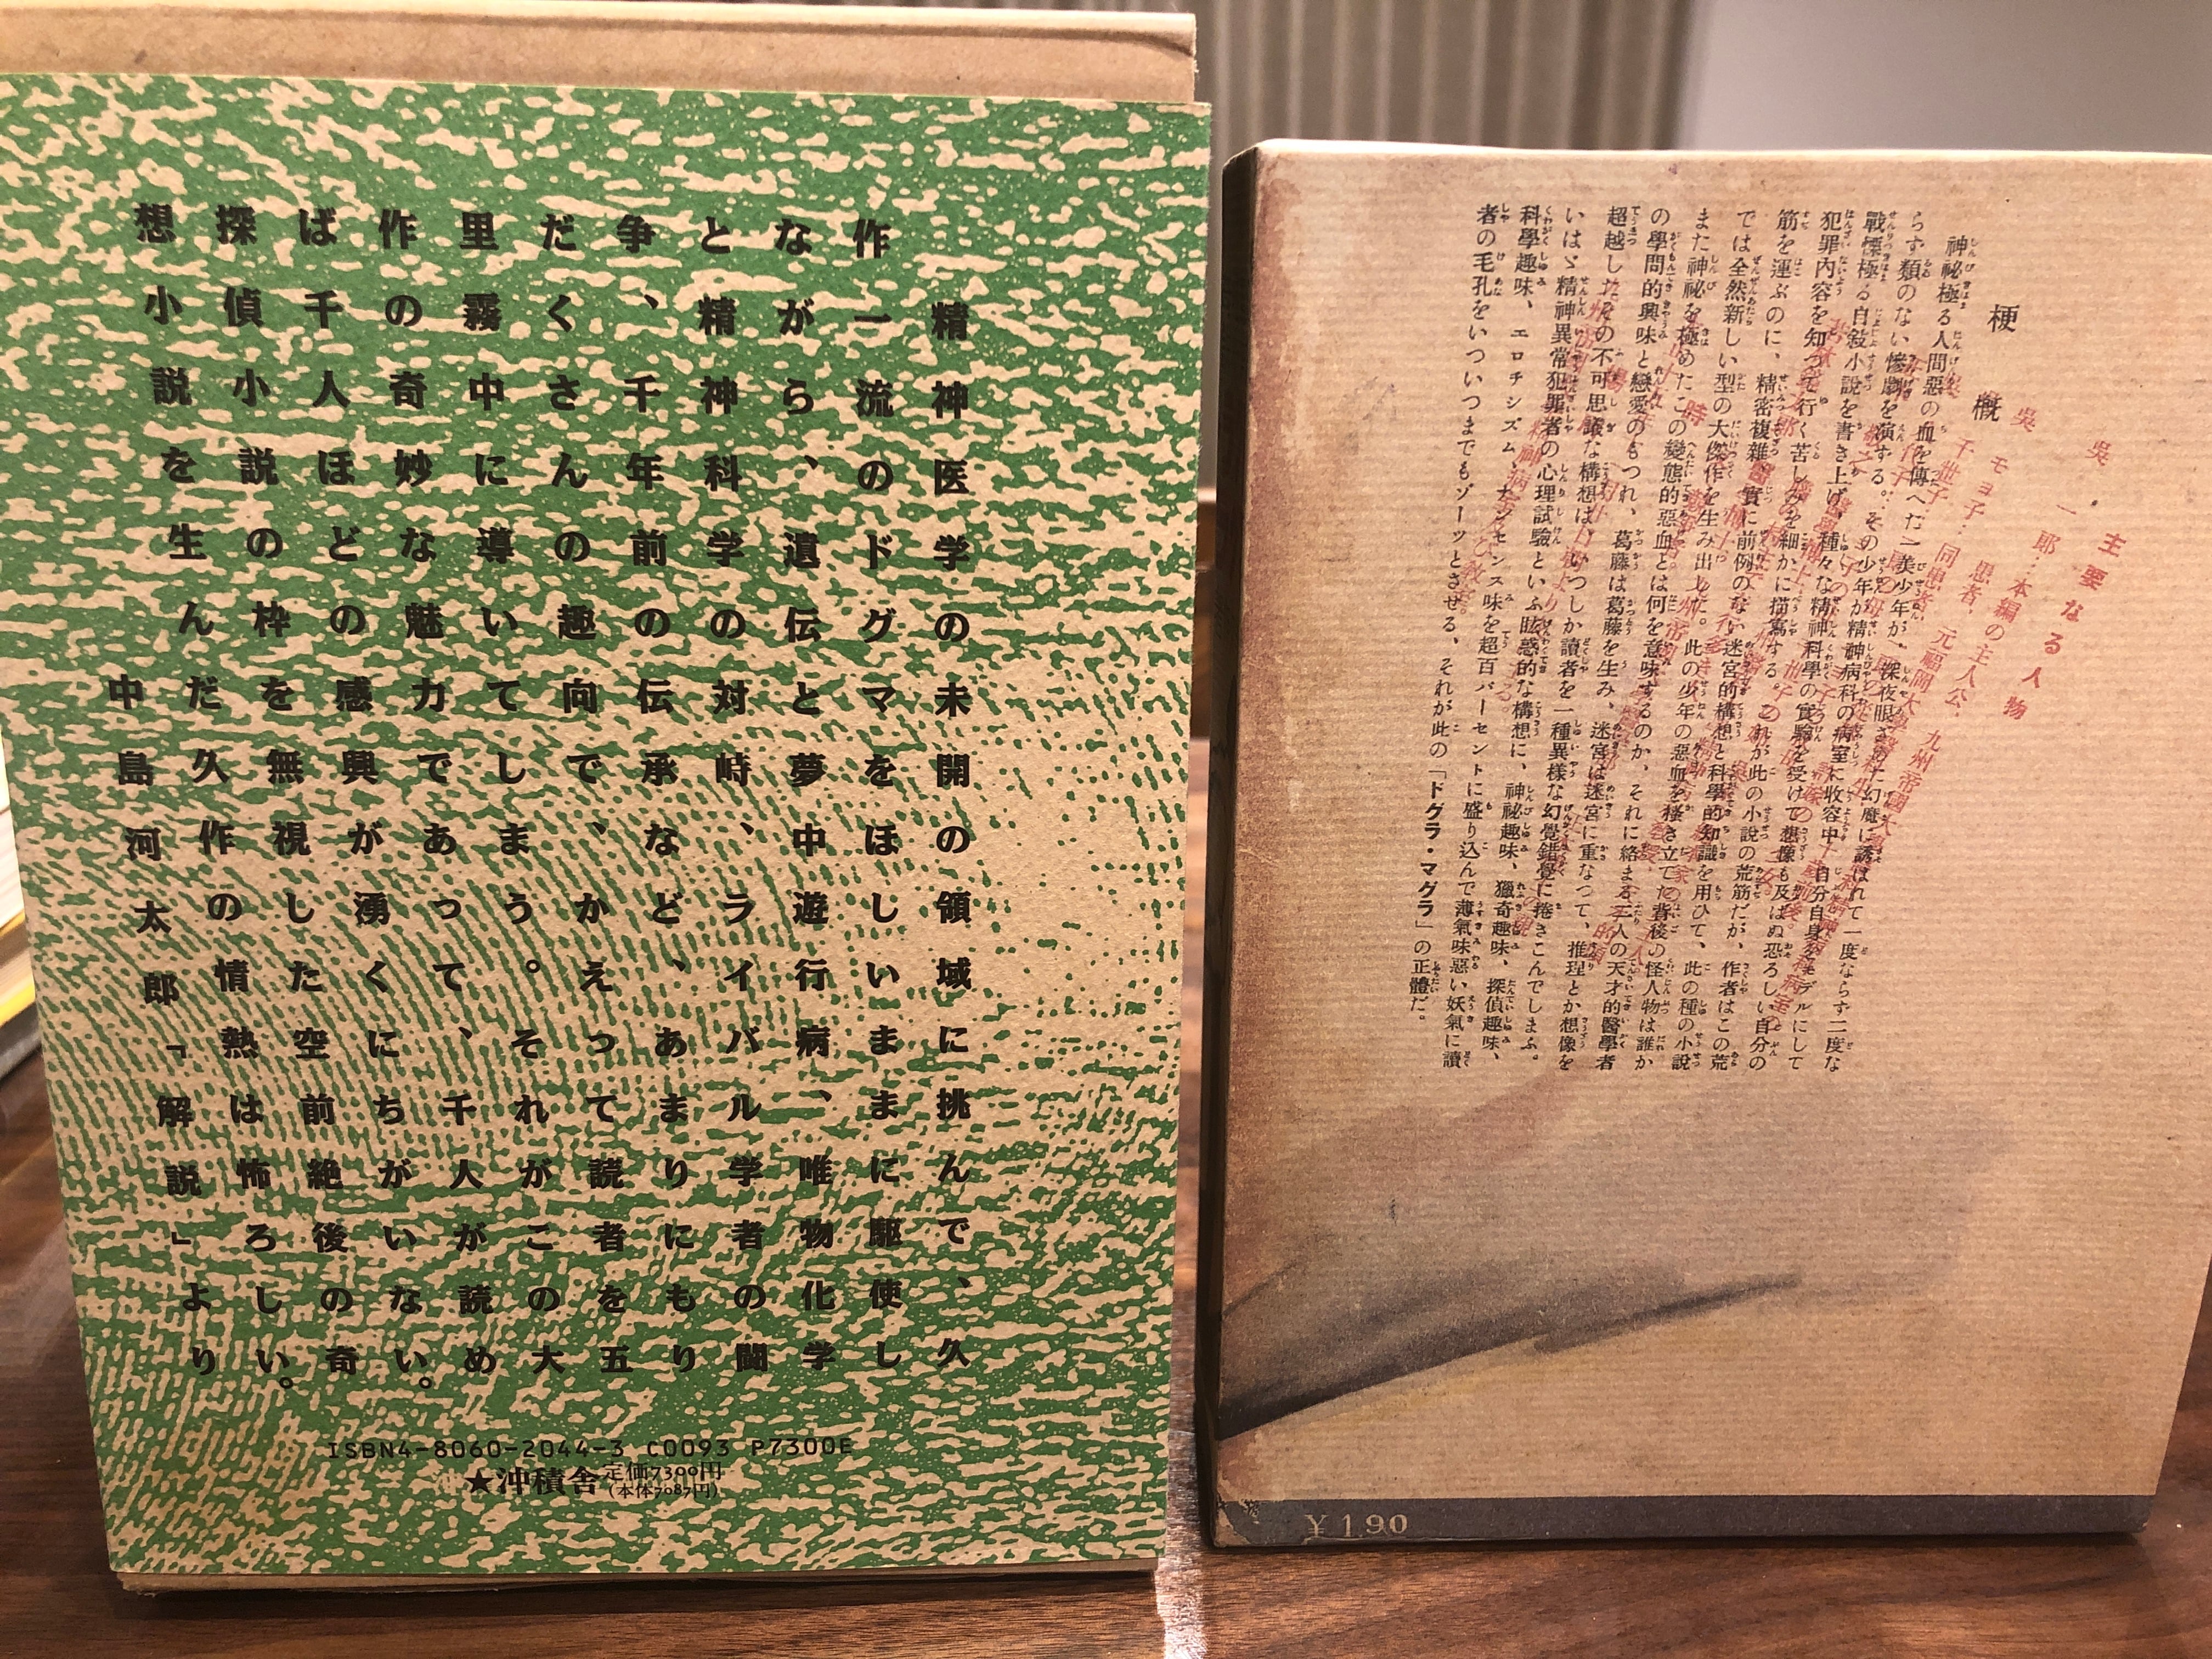 精神医学の未開の領域に挑んで、久
作一流のドグマをほしいままに駆使し
ながら、遺伝と夢中遊行病、唯物化学
と精神科学の対峙、ライバル学者の闘
争、千年前の伝承など、あまりにもり
だくさんの趣向で、かえって読者を五
里霧中に導いてしまう。それがこの大
作の奇妙な魅力であって、千人が読め
ば千人ほどの感興が湧くにちがいない。
探偵小説の枠を無視した空前絶後の奇
想小説を生んだ久作の情熱は怖ろしい。
中島河太郎「解説」より
ISBN4-8060-2044-3 C0093 P7300E
★沖積舎 定価7300円
(本体7087円)
主要なる人物
呉一郎:本編の主人公。
呉モヨ子:患者、元福岡
千世子:同患者、九州帝國大
梗概
神秘極る人間惡の血を傳へた一美少年が、深夜眼ざめ幻魔に誘はれて一度ならず二度な
らず類のない慘劇を演ずる。その少年が精神病科の病室に收容中、自分自身をモデルにして
戰慄極る自敍小説を書き上げ、種々な精神科學の實驗を受けて想像も及ばぬ恐ろしい自分の
犯罪内容を知つて行く苦しみを細かに描寫する。これが此の小説の荒筋だが、作者はこの荒
筋を運ぶのに、精密複雜、實に前例のない迷宮的構想と科學的知識を用ひて、此の種の小説
では全然新しい型の大傑作を生み出した。此の少年の惡血を掻き立てた背後の怪人物は誰か
また神秘を極めたこの變態的惡血とは何を意味するのか、それに絡まる二人の天才的醫學者
の學問的興味と戀愛のもつれ、葛藤は葛藤を生み、迷宮は迷宮に重なつて、推理とか想像を
超越したその不可思議な構想は、いつしか讀者を一種異樣な幻覺錯覺に捲きこんでしまふ。
いはゞ精神異常犯罪者の心理試驗といふ眩惑的な構想に、神秘趣味、獵奇趣味、探偵趣味、
科學趣味、エロチシズム、ナンセンス味を超百パーセントに盛り込んで薄氣味惡い妖氣に讀
者の毛孔をいついつまでもゾーッとさせる、それが此の「ドグラ・マグラ」の正體だ。
¥1.90